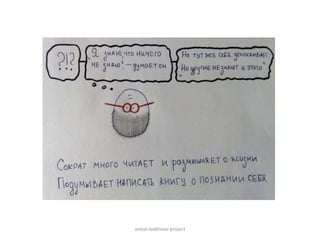 ?!?
"Я знаю, что ничего
не знаю" – думает он
"Но тут же себя успокаивает:
Но другие не знают и этого"
Сократ много читает и размышляет о жизни
Подумывает написать книгу о познании себя
anton-ivakhnov-project